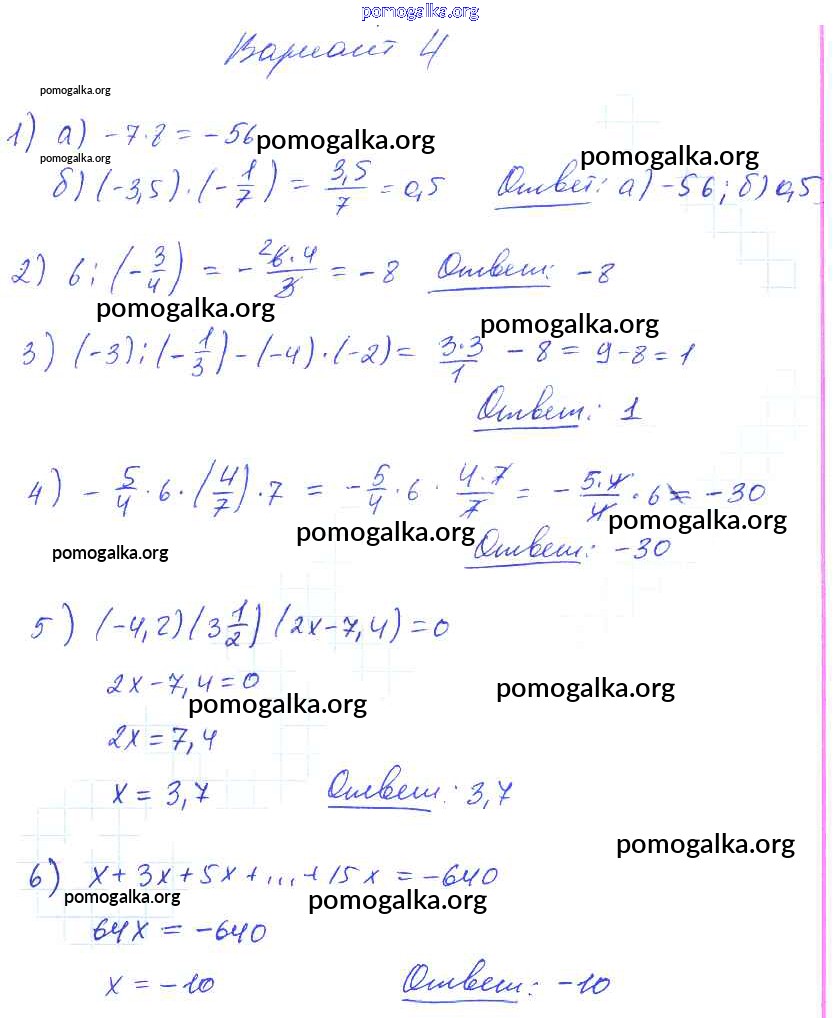 pomogalka.org
Вариант 4
pomogalka.org
1) а) -7·8 = -56 pomogalka.org
pomogalka.org pomogalka.org
б) (-3,5)·(-1/7) = 3,5/7 = 0,5 Ответ: а) -56; б) 0,5
2) 6 : (-3/4) = - 2 6·4/3 = -8 Ответ: -8
pomogalka.org pomogalka.org
3) (-3) : (-1/3) - (-4)·(-2) = 3·3/1 - 8 = 9-8 = 1
Ответ: 1
4) - 5/4 · 6 · (4/7) · 7 = - 5/4 · 6 · 4·7/7 = - 5·4/4 · 6 = -30
pomogalka.org pomogalka.org
pomogalka.org Ответ: -30
5) (-4,2)(3 1/2)(2x-7,4) = 0
2x-7,4 = 0
pomogalka.org pomogalka.org
2x = 7,4
x = 3,7 Ответ: 3,7
pomogalka.org
6) x + 3x + 5x + ... + 15x = -640
pomogalka.org pomogalka.org
64x = -640
x = -10 Ответ: -10